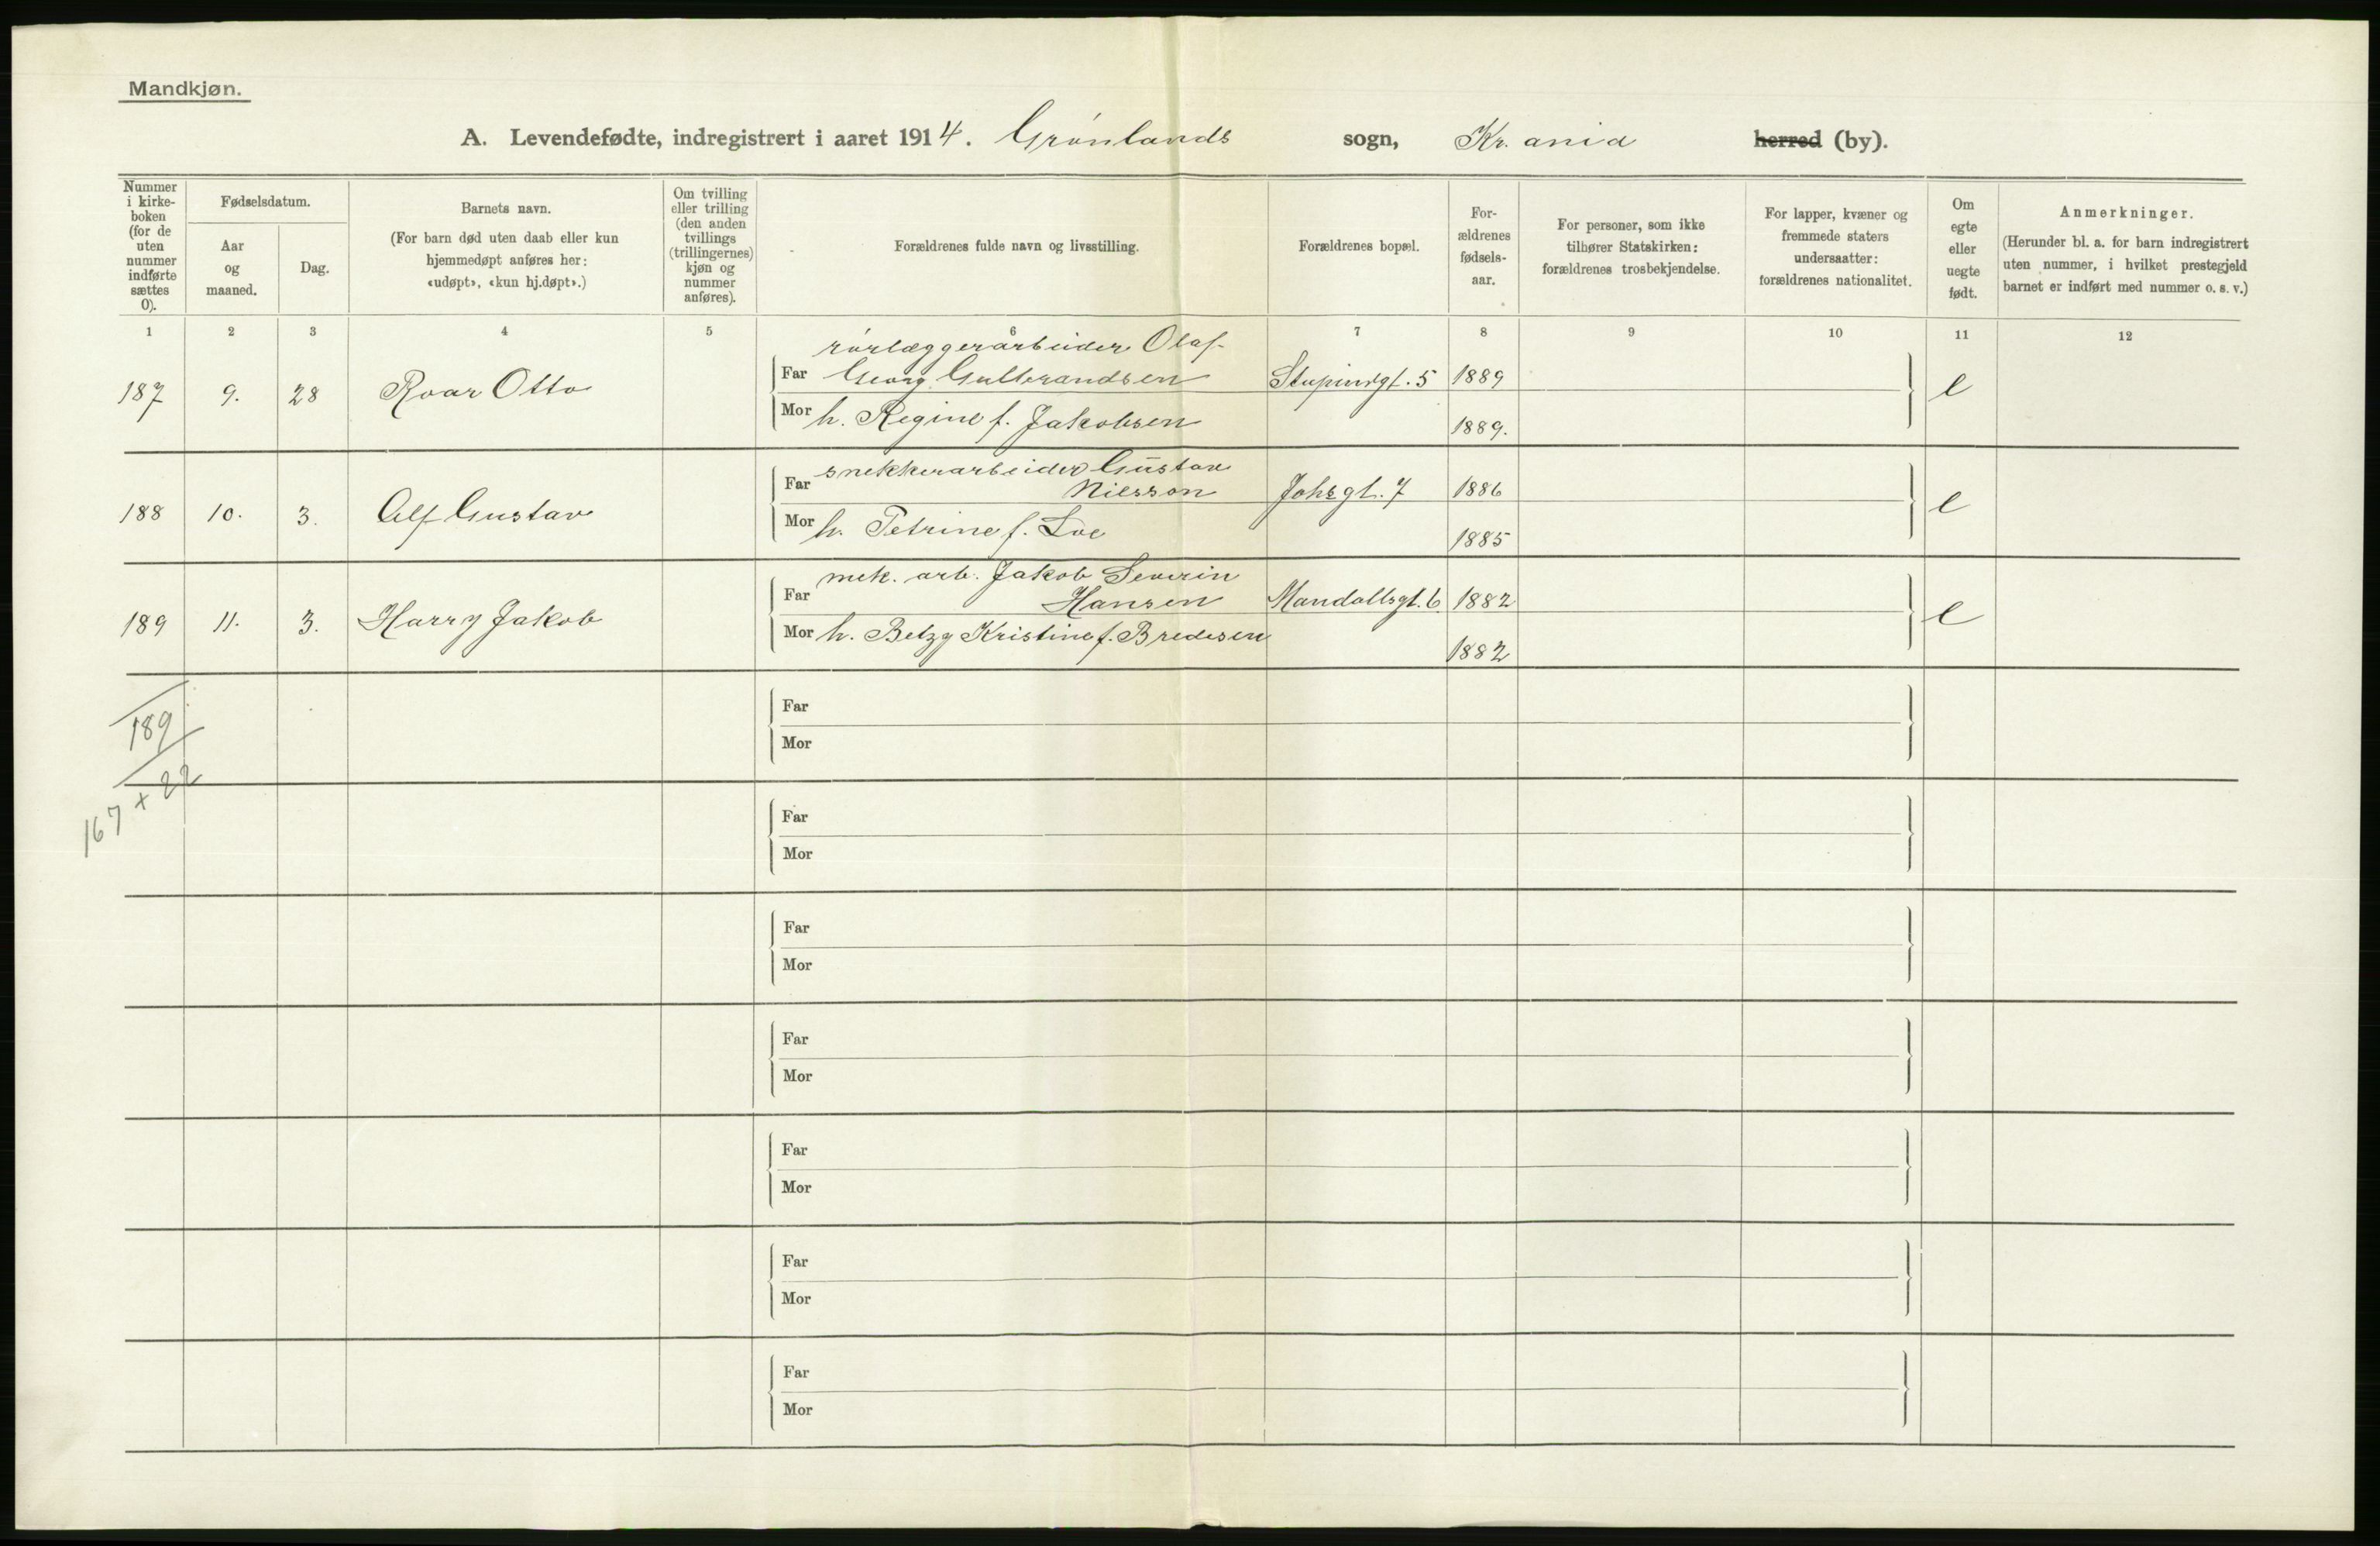 Mandkjøn.
A. Levendefødte, indregistrert i aaret 1914. Grønlands sogn, Kr.ania herred (by).
Nummer i kirke- boken (for de uten nummer indførte sættes 0).
Fødselsdatum.
Aar og maaned.
Dag.
Barnets navn.
(For barn død uten daab eller kun hjemmedøpt anføres her: «udøpt», «kun hj.døpt».)
Om tvilling eller trilling (den anden tvillings (trillingernes) kjøn og nummer anføres).
Forældrenes fulde navn og livsstilling.
Forældrenes bopæl.
For- ældrenes fødsels- aar.
For personer, som ikke tilhører Statskirken: forældrenes trosbekjendelse.
For lapper, kvæner og fremmede staters undersaatter: forældrenes nationalitet.
Om egte eller uegte født.
Anmerkninger.
(Herunder bl. a. for barn indregistrert uten nummer, i hvilket prestegjeld barnet er indført med nummer o. s. v.)
1 2 3 4 5 6 7 8 9 10 11 12
rørlæggerarbeider Olaf
187 9. 28 Roar Otto Far Georg Gulbrandsen 5 1889 e
Mor h. Regine f. Jakobsen 1889.
snekkerarbeider Gustav
188 10. 3. Alf Gustav Far Nilsson Johsgt. 7 1886 e
Mor h. Petrine f. Loe 1885
mek. arb. Jakob Severin
189 11. 3. Harry Jakob Far Hansen Mandallsgt. 6. 1882 e
Mor h. Betzy Kristine f. Bredesen 1882
189
167 + 22
Far
Mor
Far
Mor
Far
Mor
Far
Mor
Far
Mor
Far
Mor
Far
Mor